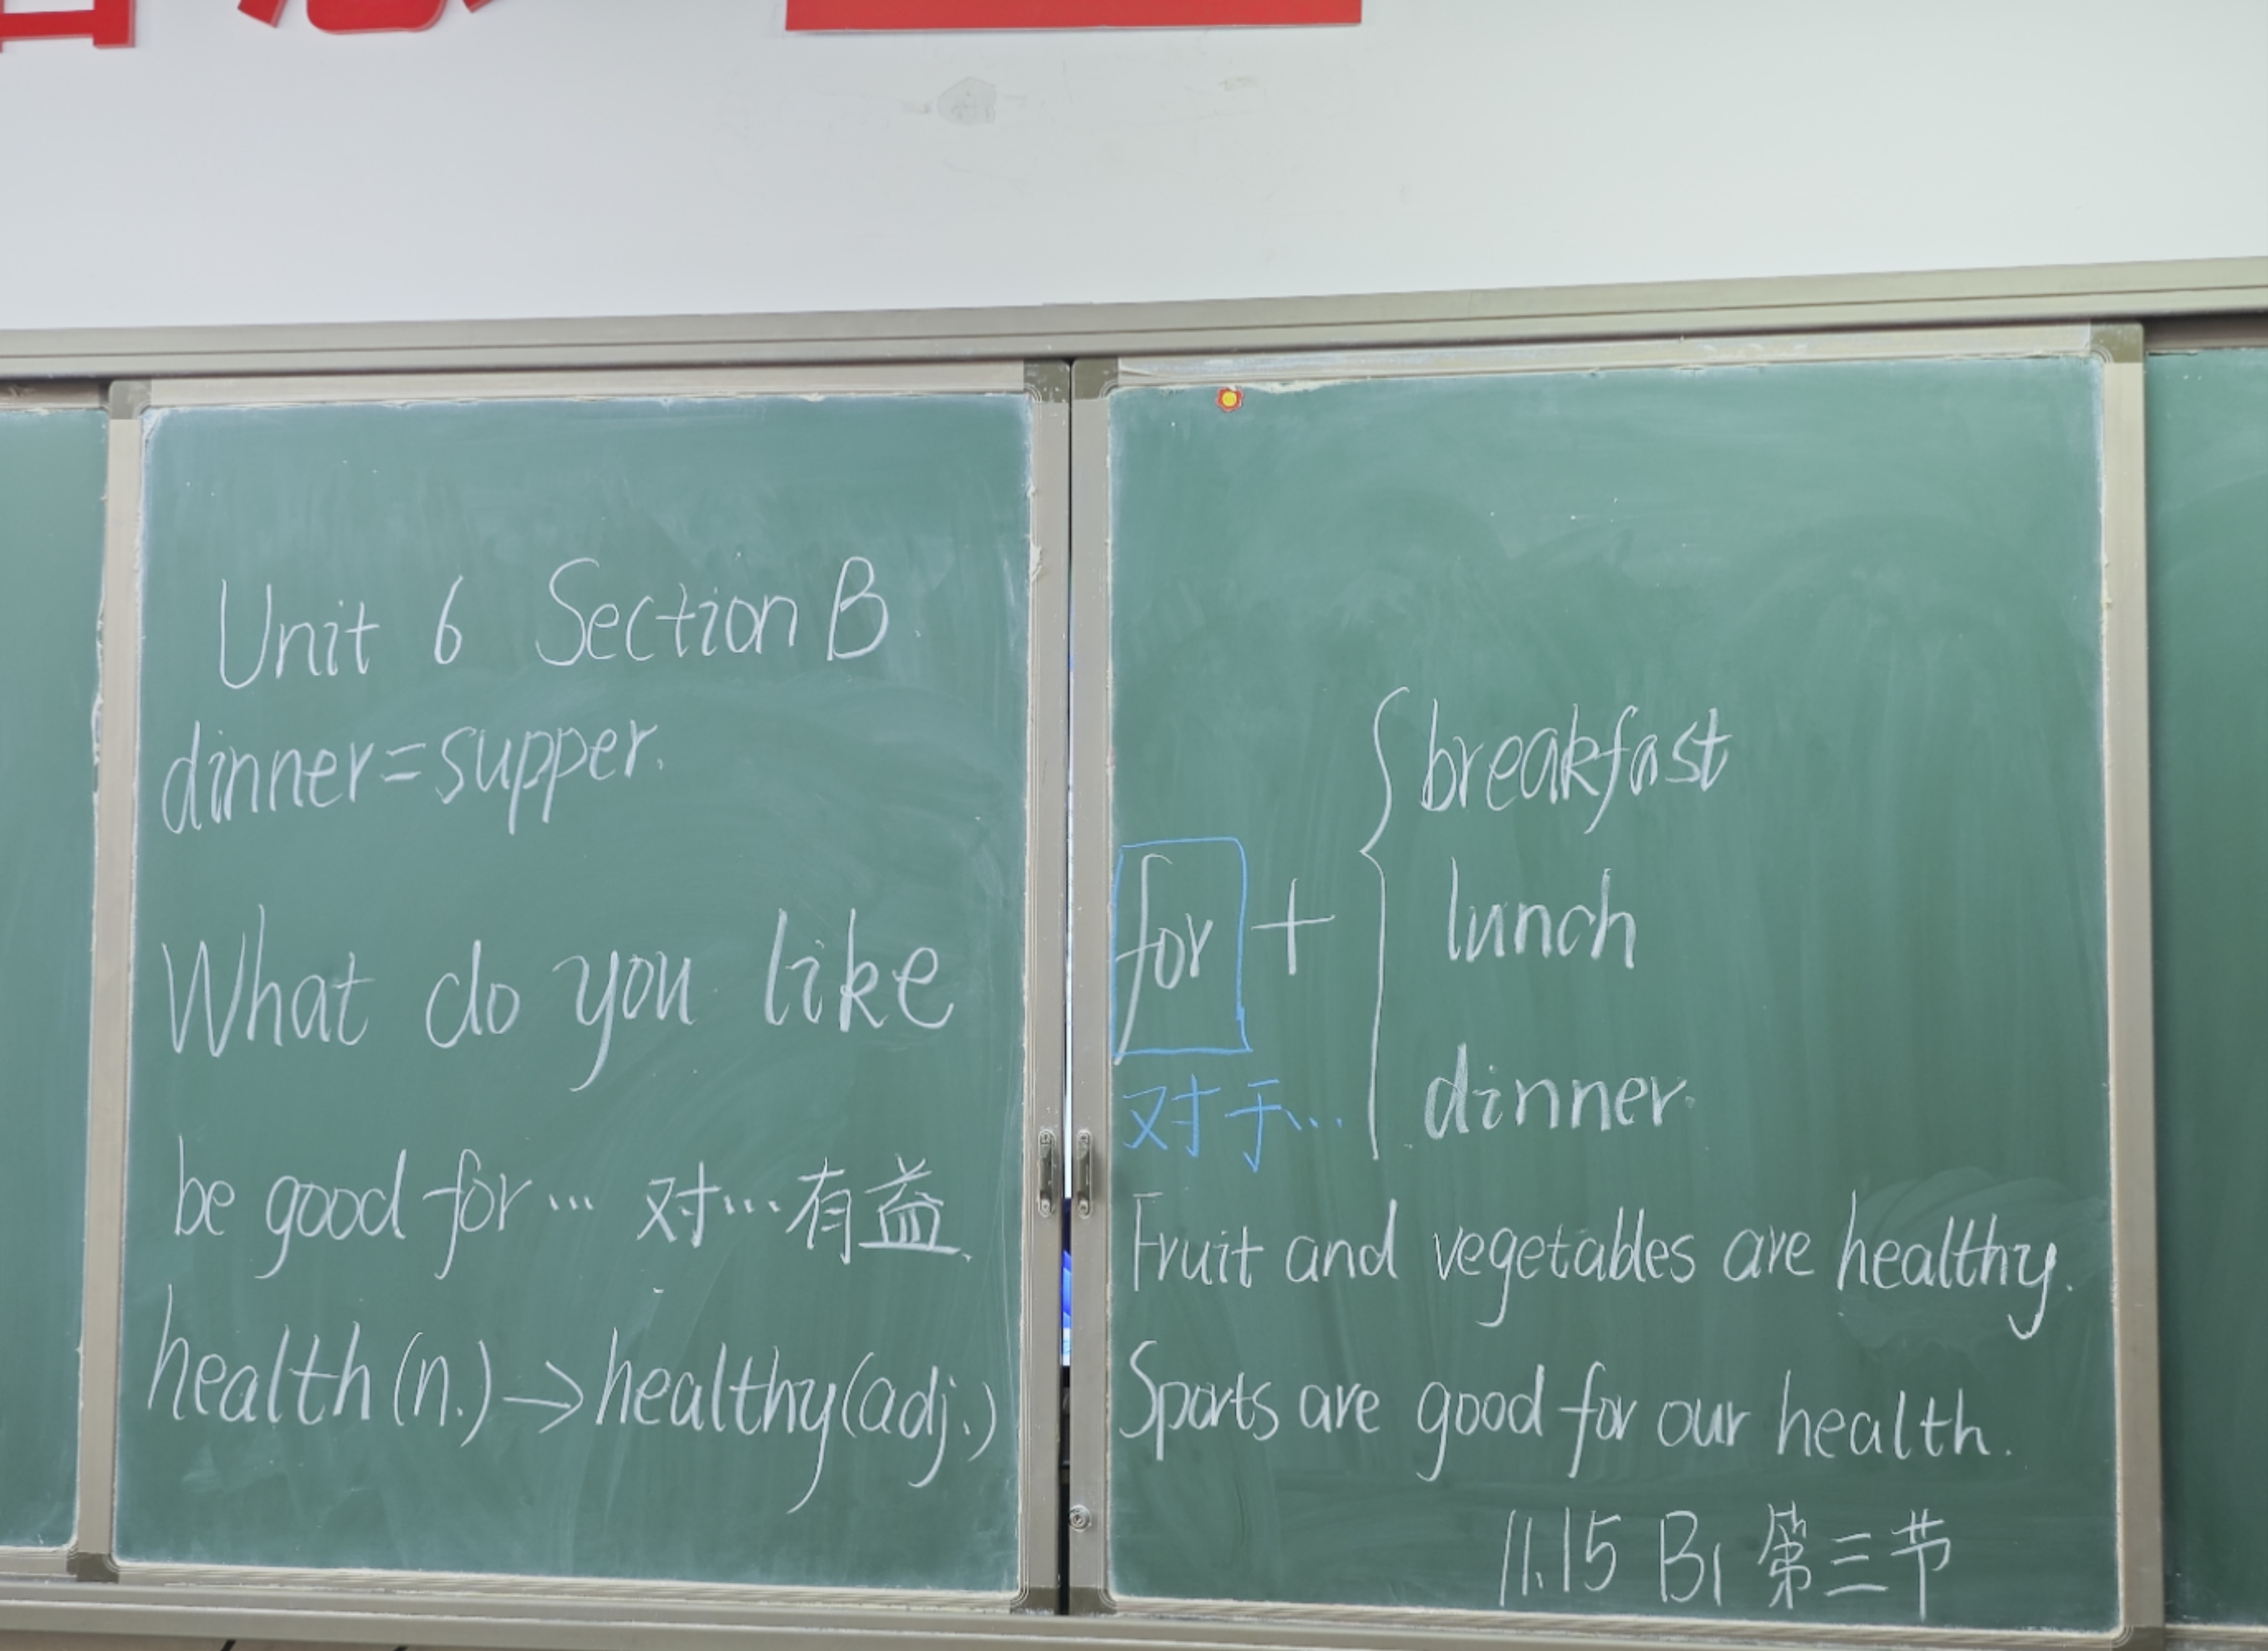 Unit 6 Section B
dinner=supper.
What do you like
be good for… 对…有益.
health(n.)→healthy(adj.)
breakfast
for + { lunch
对于…
dinner.
Fruit and vegetables are healthy.
Sports are good for our health.
11.15 B1 第三节